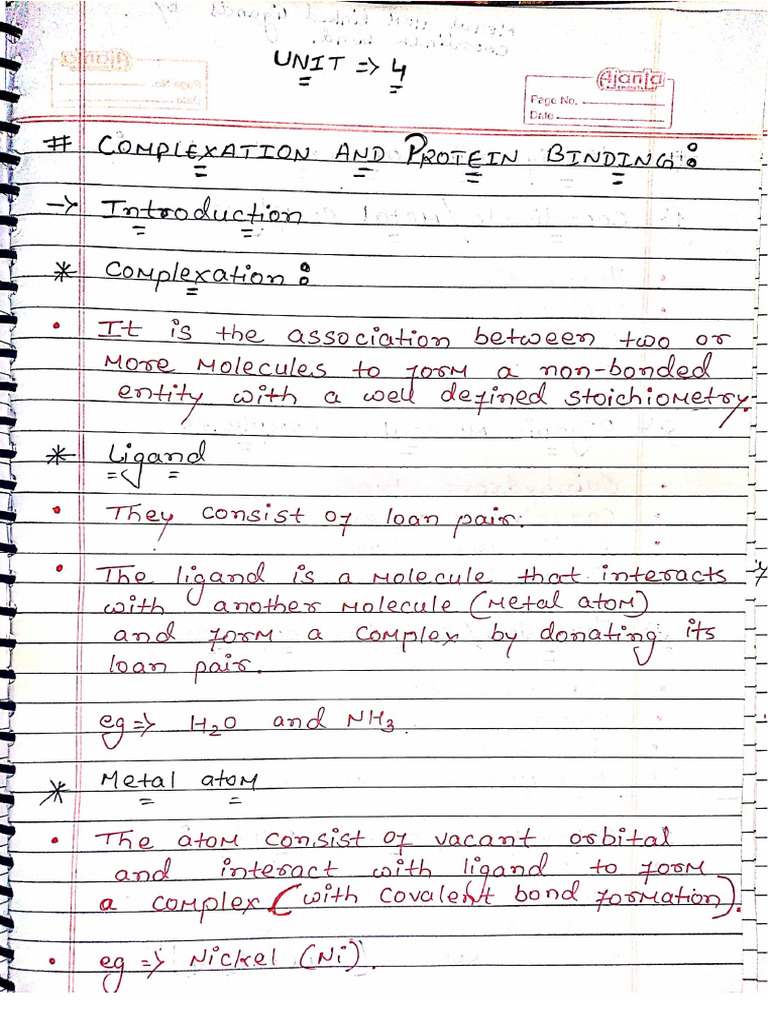 UNIT => 4
Ajanta
Page No.
Date
# COMPLEXATION AND PROTEIN BINDING:
-> Introduction
* Complexation:
• It is the association between two or
more molecules to form a non-bonded
entity with a well defined stoichiometry.
* Ligand
• They consist of loan pair.
• The ligand is a molecule that interacts
with another molecule (metal atom)
and form a complex by donating its
loan pair.
eg => H2O and NH3.
* Metal atom
• The atom consist of vacant orbital
and interact with ligand to form
a complex (with covalent bond formation).
• eg => Nickel (Ni).